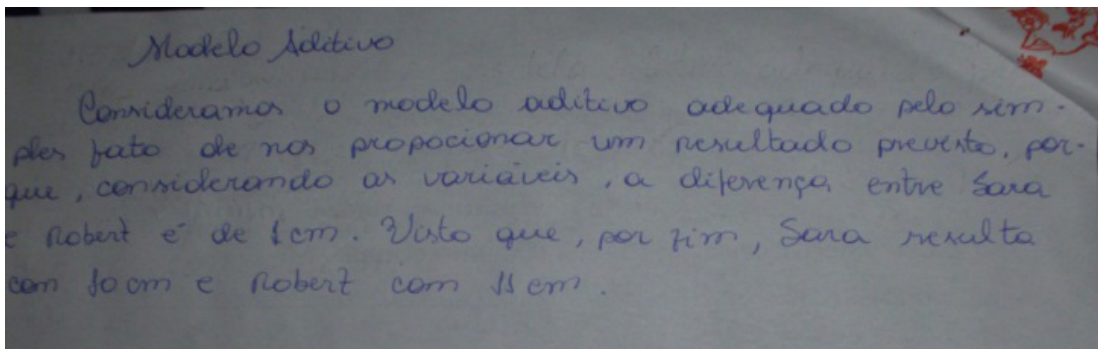 Modelo Aditivo
Consideramos o modelo aditivo adequado pelo sim-
ples fato de nos propocionar um resultado previsto, por-
que, considerando as variáveis, a diferença entre Sara
e Robert é de 1cm. Visto que, por fim, Sara resulta
com 10 cm e Robert com 11 cm.